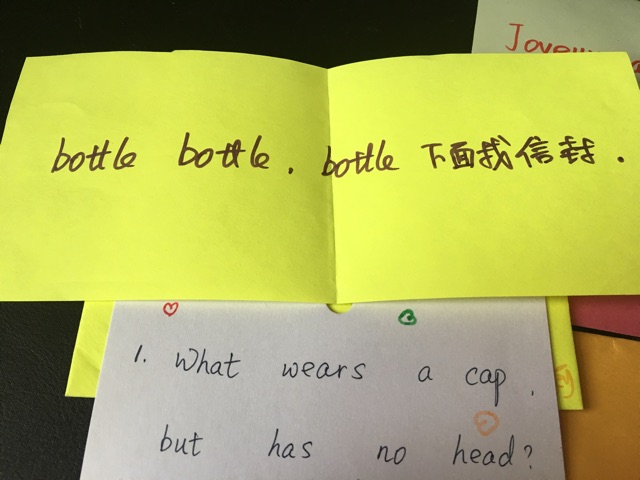 bottle bottle. bottle 下面找信封.
1. What wears a cap,
but has no head?